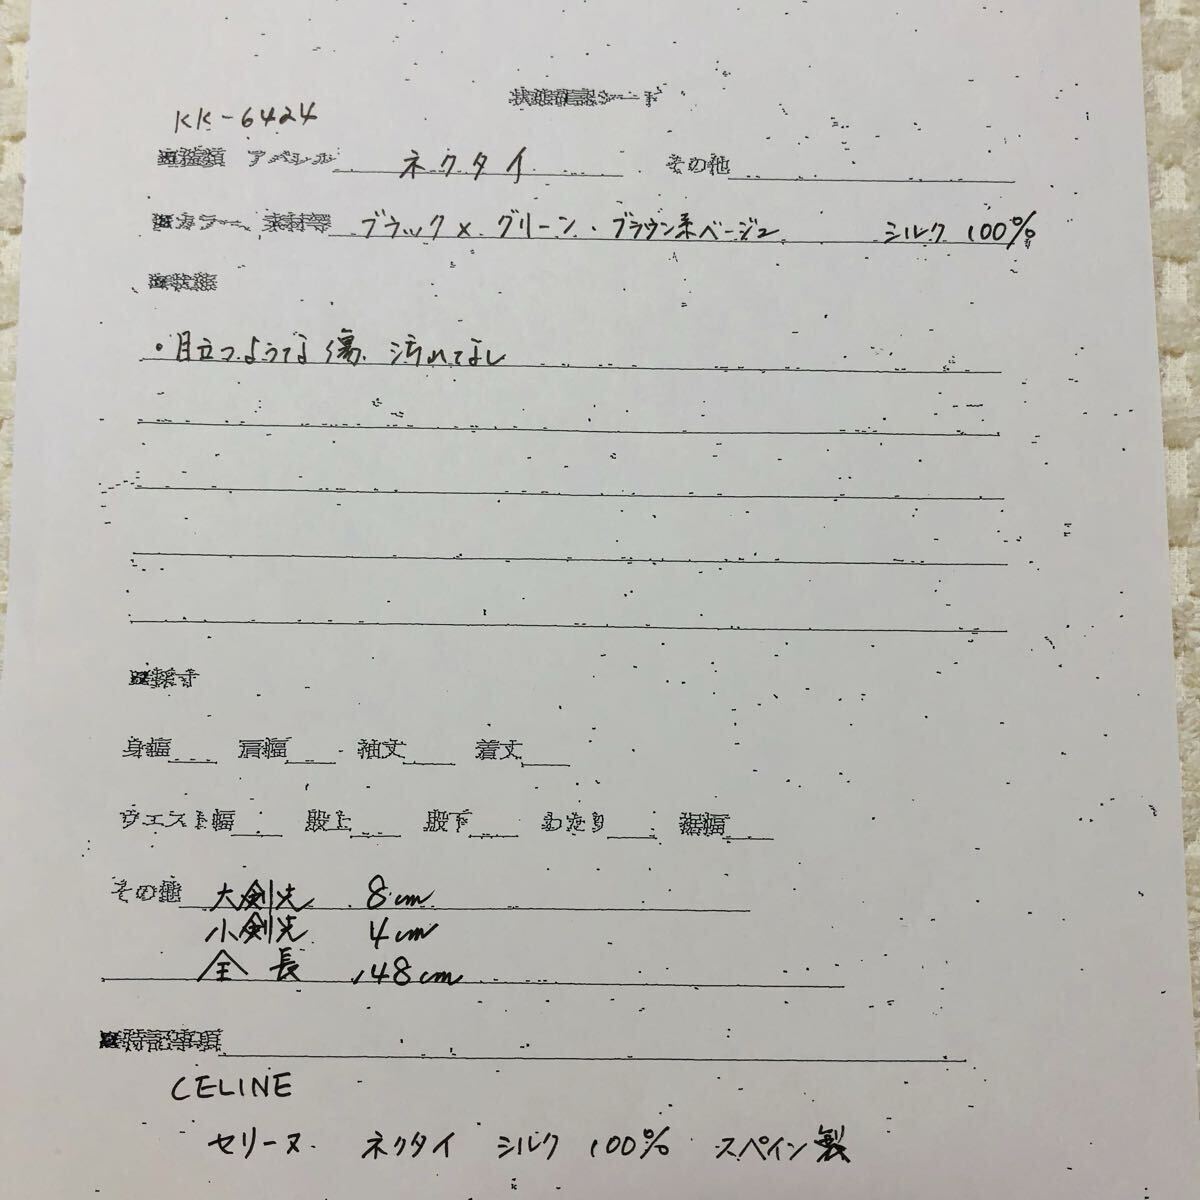 状態確認シート
KK-6424
■種類 アパレル ネクタイ その他
■カラー、素材等 ブラック×グリーン・ブラウン系ベージュ シルク 100%
■状態
・目立つような傷、汚れてなし
■採寸
身幅 肩幅 袖丈 着丈
ウエスト幅 股上 股下 わたり 裾幅
その他 大剣先 8cm
小剣先 4cm
全長 148cm
■特記事項
CELINE
セリーヌ ネクタイ シルク 100% スペイン製